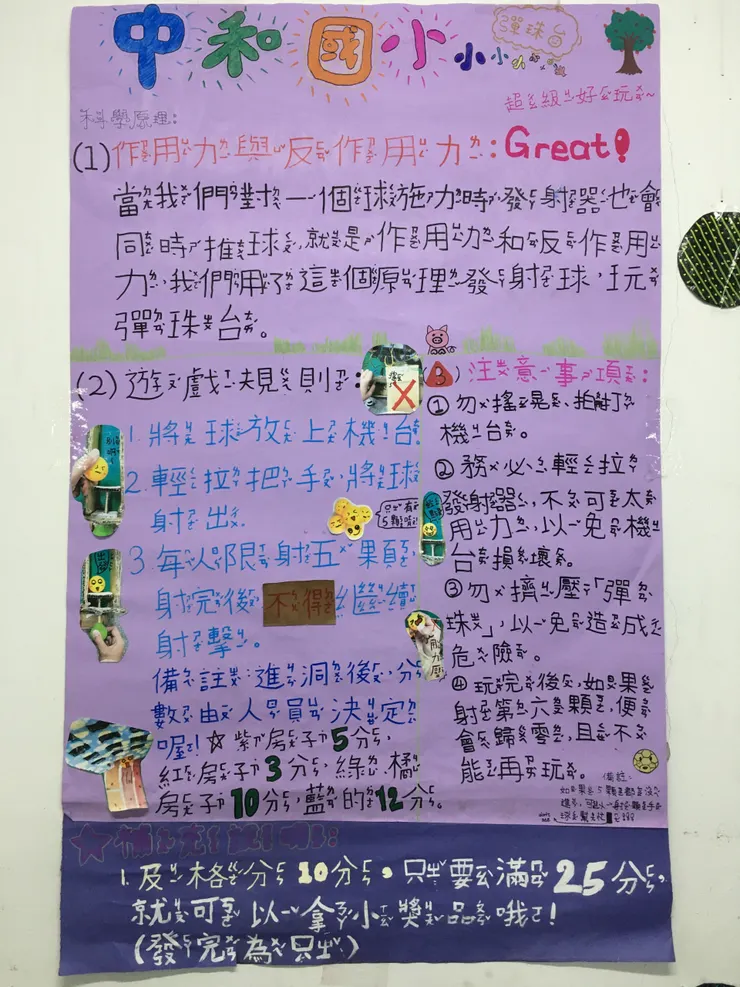 中和國小小小小
彈珠台
超級好玩~
科學原理:
(1)作用力與反作用力:Great!
當我們對一個球施力時,發射器也會
同時推球,就是作用力和反作用
力,我們用了這個原理發射球,玩
彈珠台。
(2)遊戲規則:
1.將球放上機台
2.輕拉把手,將球
射出。
只有
5顆
3.每人限射五顆,
射完後不得繼續
射擊。
備註:進洞後,分
數由人員決定
喔!☆紫房子5分,
紅房子3分,綠、橘
房子10分,藍的12分。
(3)注意事項:
①勿搖晃、拍打
機台。
②務必輕拉
發射器,不可太
用力,以免機
台損壞。
③勿擠壓「彈
珠」,以免造成
危險。
④玩完後,如果
射第六顆,便
會歸零,且不
能再玩。
備註:
★補充說明:
1.及格分10分。只要滿25分,
就可以拿小獎品哦!
(發完為只)